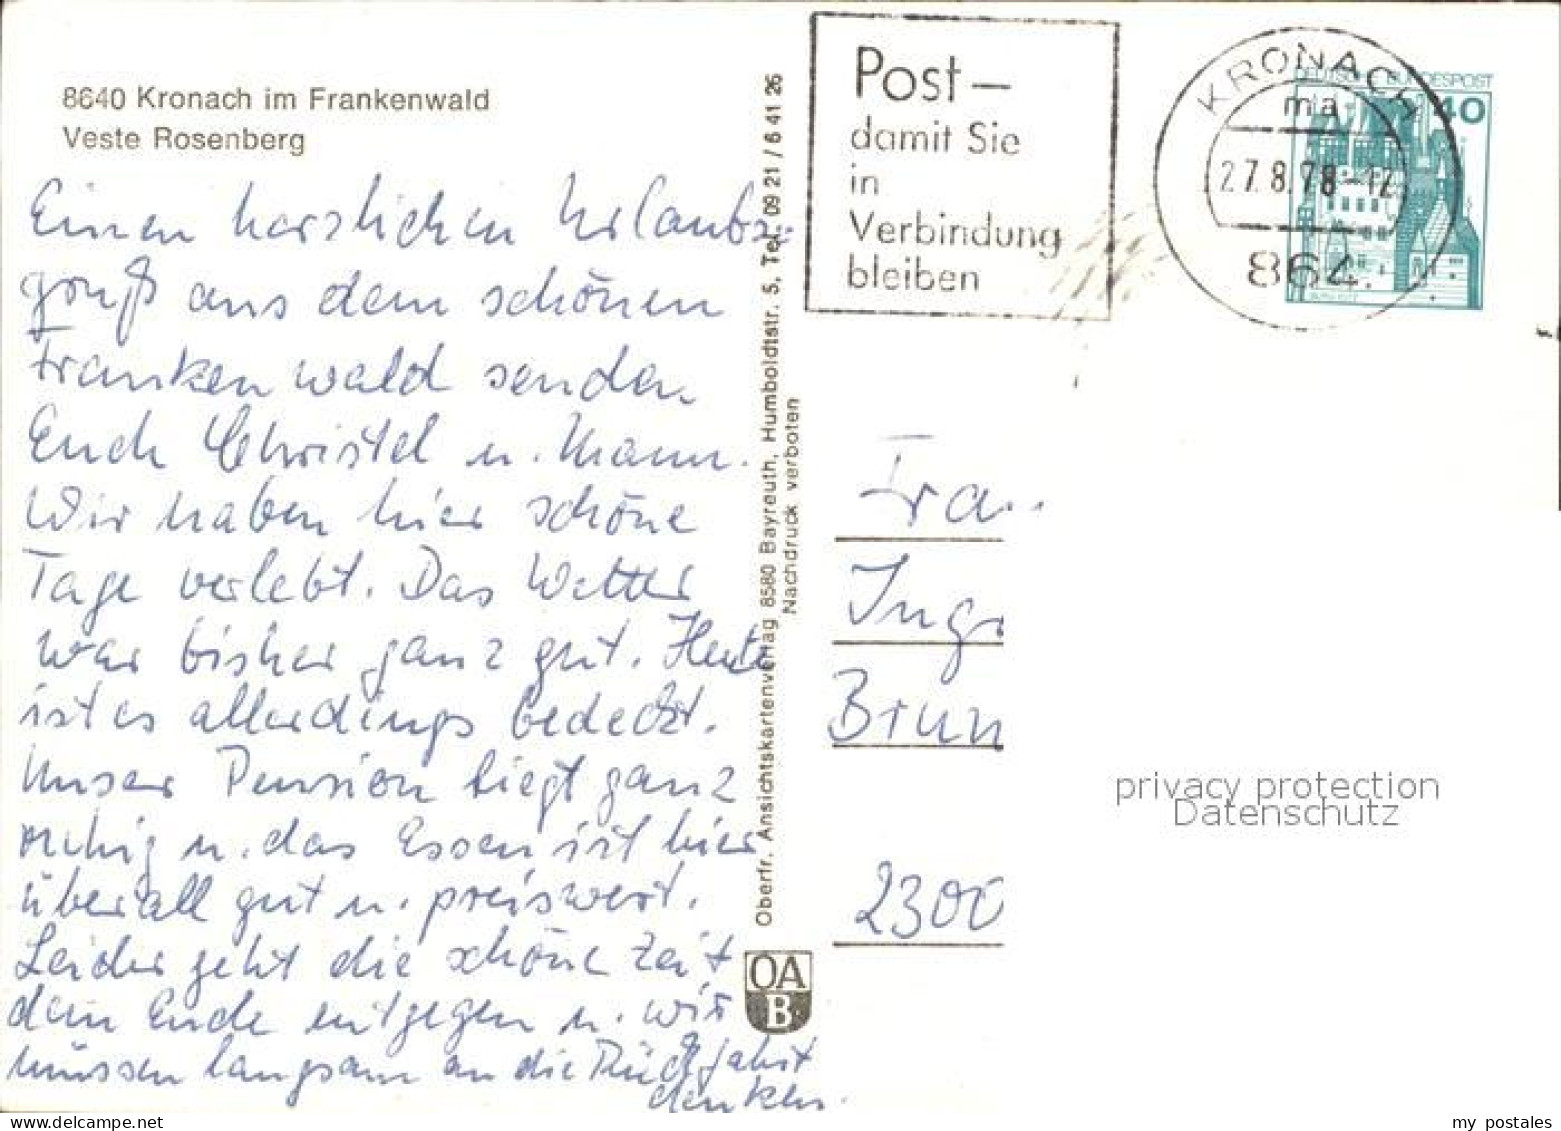 8640 Kronach im Frankenwald
Veste Rosenberg
Einen herzlichen Urlaubs-
gruß aus dem schönen
Frankenwald senden
Euch Christel u. Mann.
Wir haben hier schöne
Tage verlebt. Das Wetter
war bisher ganz gut. Heute
ist es allerdings bedeckt.
Unser Pension liegt ganz
ruhig u. das Essen ist hier
überall gut u. preiswert.
Leider geht die schöne Zeit
dem Ende entgegen u. wir
müssen langsam an die Rückfahrt
denken.
Oberfr. Ansichtskartenverlag 8580 Bayreuth, Humboldtstr. 5, Tel. 09 21 / 6 41 26
Nachdruck verboten
OA
B
Post –
damit Sie
in
Verbindung
bleiben
KRONACH
ma
27.8.78-12
864
DEUTSCHE BUNDESPOST
40
Fra
Ing
Brun
2300
privacy protection
Datenschutz
my postales